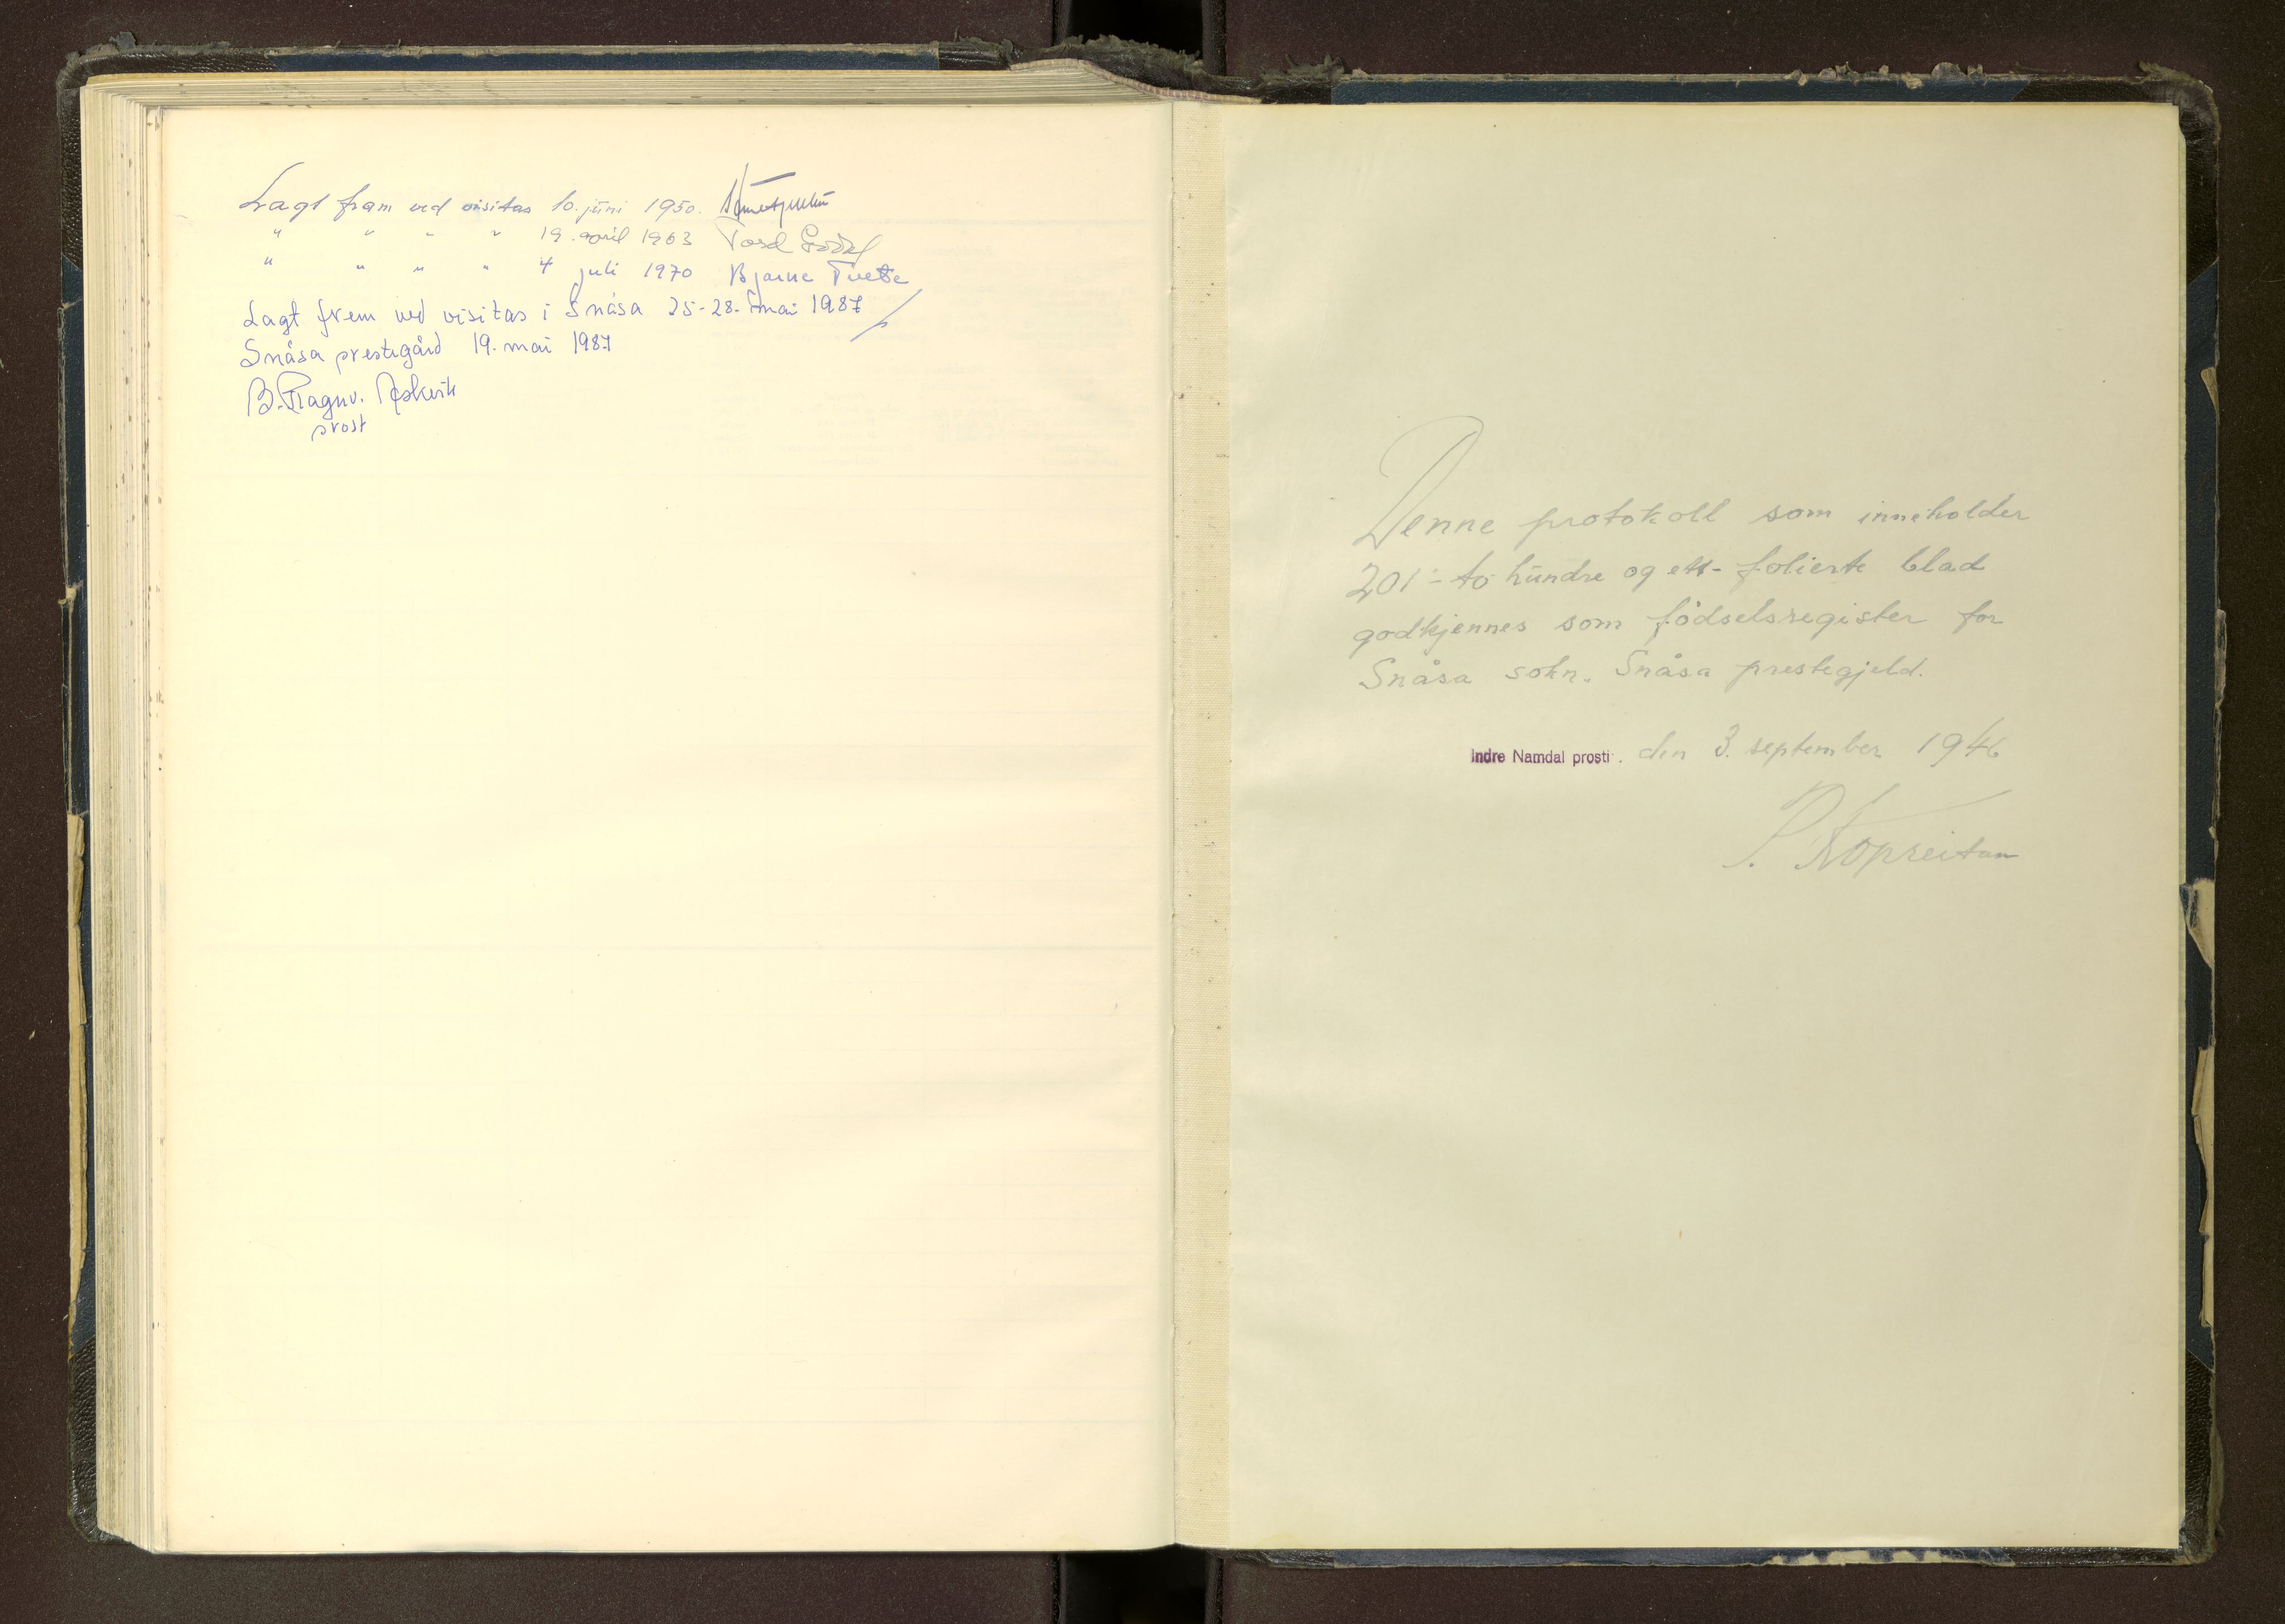 Lagt fram ved visitas 10. juni 1950.
" " " " 19. april 1963 Tord Godal
" " " " 4 juli 1970 Bjarne Tveter
Lagt frem ved visitas i Snåsa 25-28. mai 1987
Snåsa prestegård 19. mai 1987
B. Ragnv. Askvik
prost
Denne protokoll som inneholder
201 - to hundre og ett - folierte blad
godkjennes som födselsregister for
Snåsa sokn. Snåsa prestegjeld.
Indre Namdal prosti. den 3. september 1946
P. Kopreitan